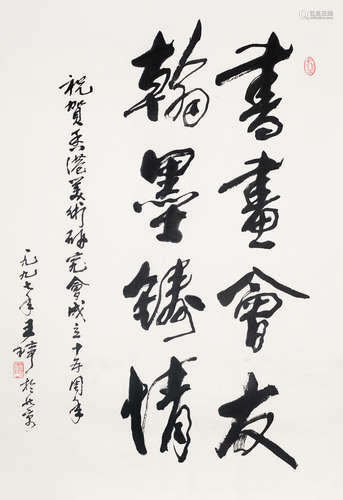 書畫會友
翰墨鑄情
祝賀香港美術研究會成立十年周年
一九九七年王琦於北京